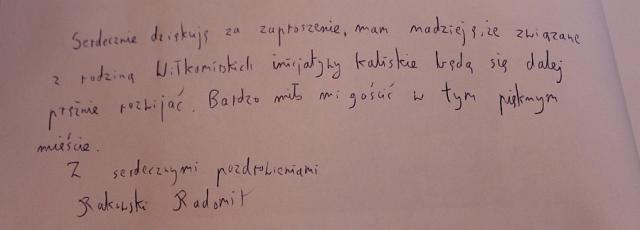 Serdecznie dziękuję za zaproszenie, mam nadzieję, że związane
z rodziną Wiłkomirskich inicjatywy kaliskie będą się dalej
prężnie rozwijać. Bardzo miło mi gościć w tym pięknym
mieście.
Z serdecznymi pozdrowieniami
Rakowski Radomił